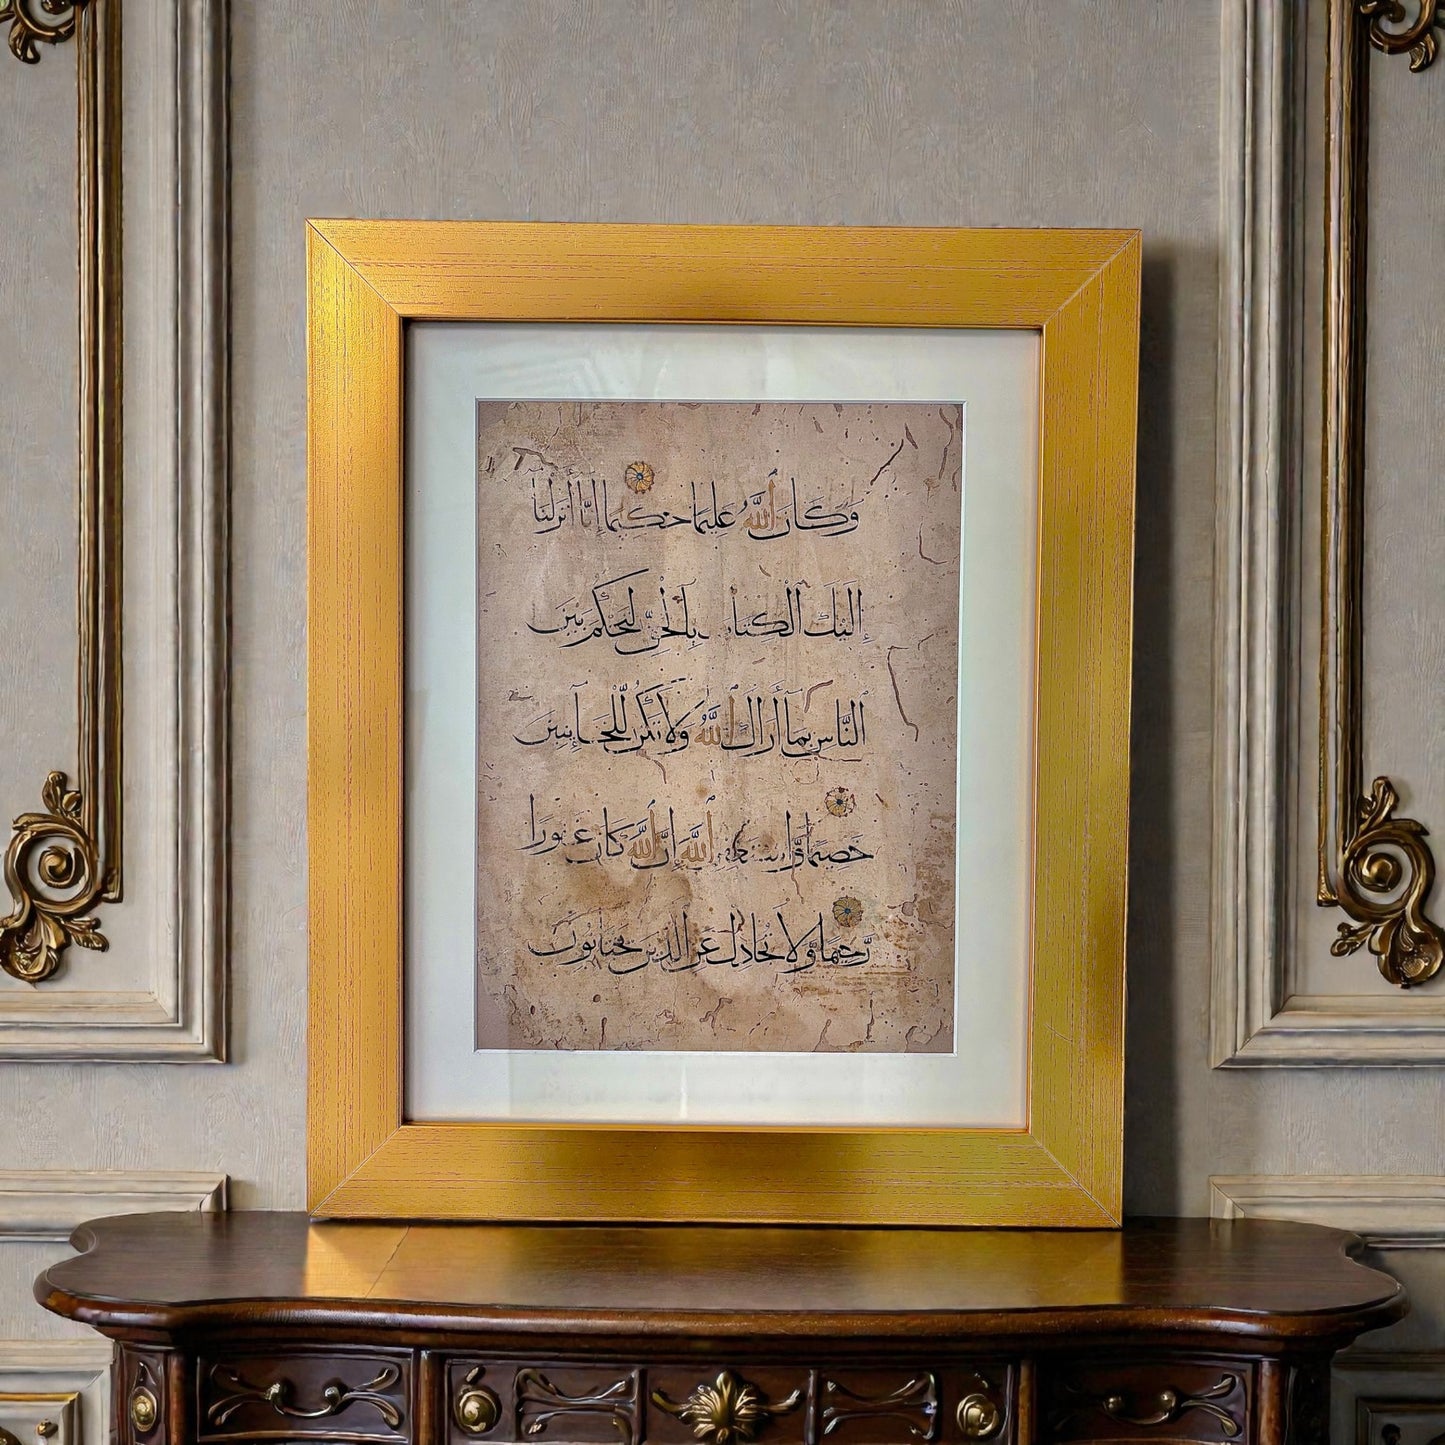 وَكَانَ اللَّهُ عَلِيمًا حَكِيمًا إِنَّا أَنزَلْنَا
إِلَيْكَ الْكِتَابَ بِالْحَقِّ لِتَحْكُمَ بَيْنَ
النَّاسِ بِمَا أَرَاكَ اللَّهُ وَلَا تَكُن لِّلْخَائِنِينَ
خَصِيمًا وَاسْتَغْفِرِ اللَّهَ إِنَّ اللَّهَ كَانَ غَفُورًا
رَّحِيمًا وَلَا تُجَادِلْ عَنِ الَّذِينَ يَخْتَانُونَ